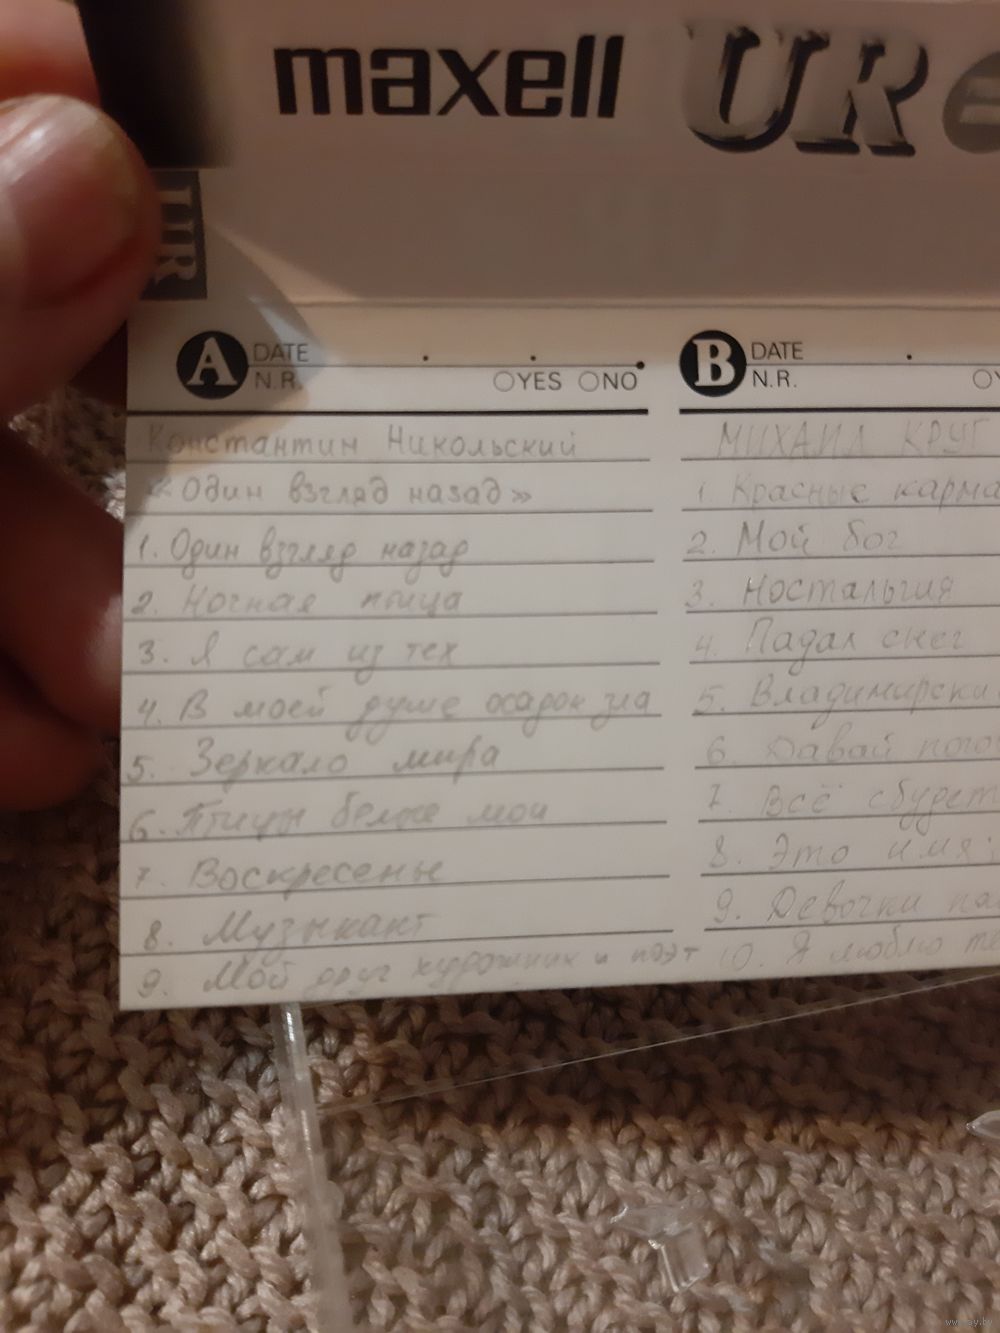 maxell UR
UR
A DATE
N.R. YES NO
Константин Никольский
«Один взгляд назад»
1. Один взгляд назад
2. Ночная птица
3. Я сам из тех
4. В моей душе осадок зла
5. Зеркало мира
6. Птицы белые мои
7. Воскресенье
8. Музыкант
9. Мой друг художник и поэт
B DATE
N.R.
МИХАИЛ КРУГ
1. Красные карма
2. Мой бог
3. Ностальгия
4. Падал снег
5. Владимирски
6. Давай пого
7. Всё сбудет
8. Это имя
9. Девочки па
10. Я люблю те